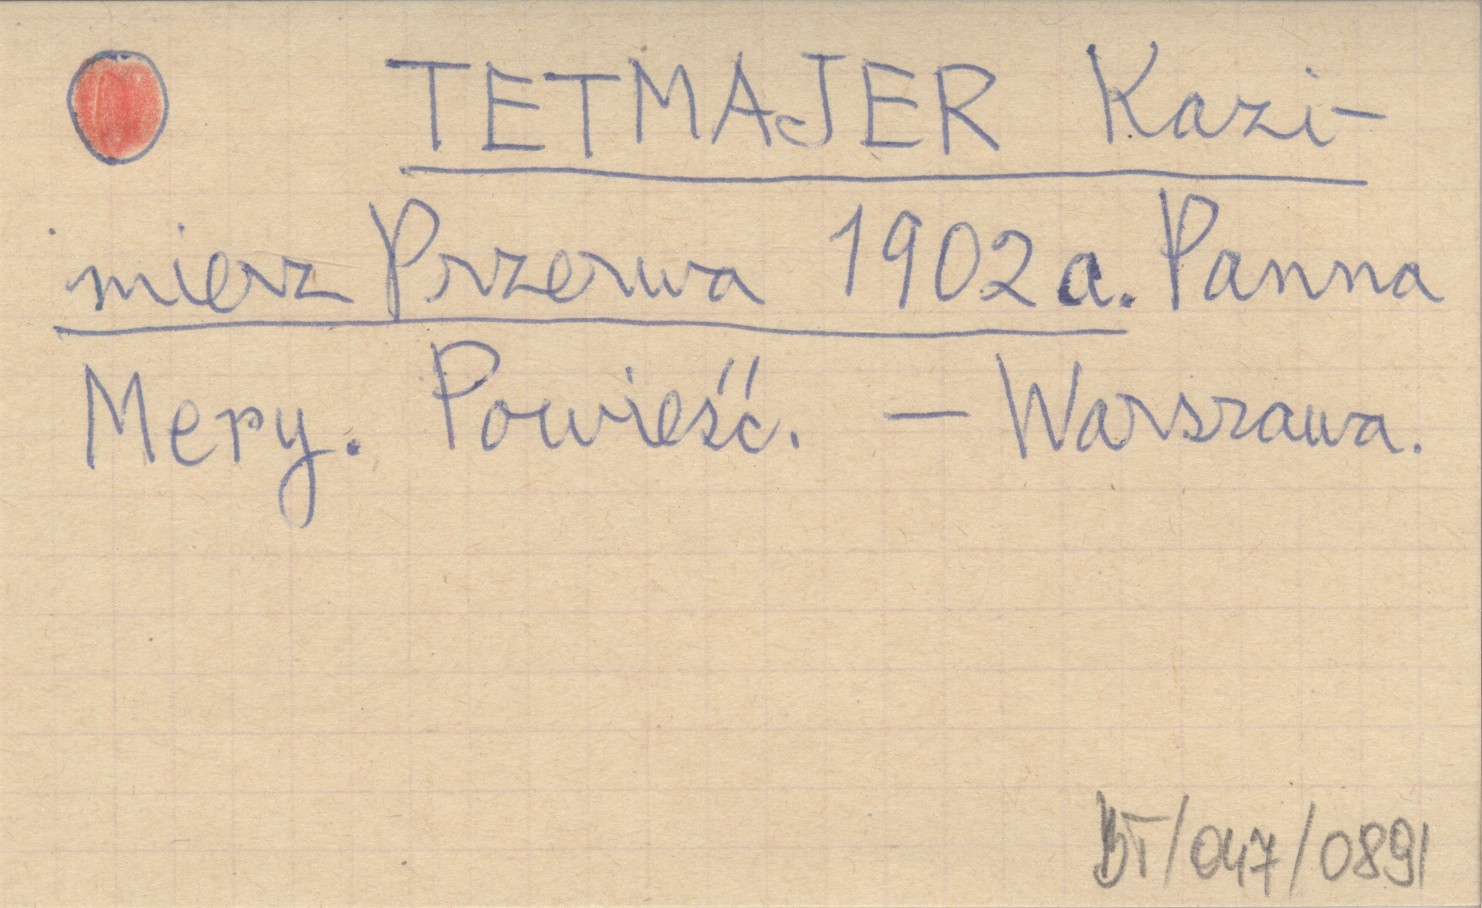 TETMAJER Kazi-
mierz Przerwa 1902a. Panna
Mery. Powieść. — Warszawa.
BT/047/0891